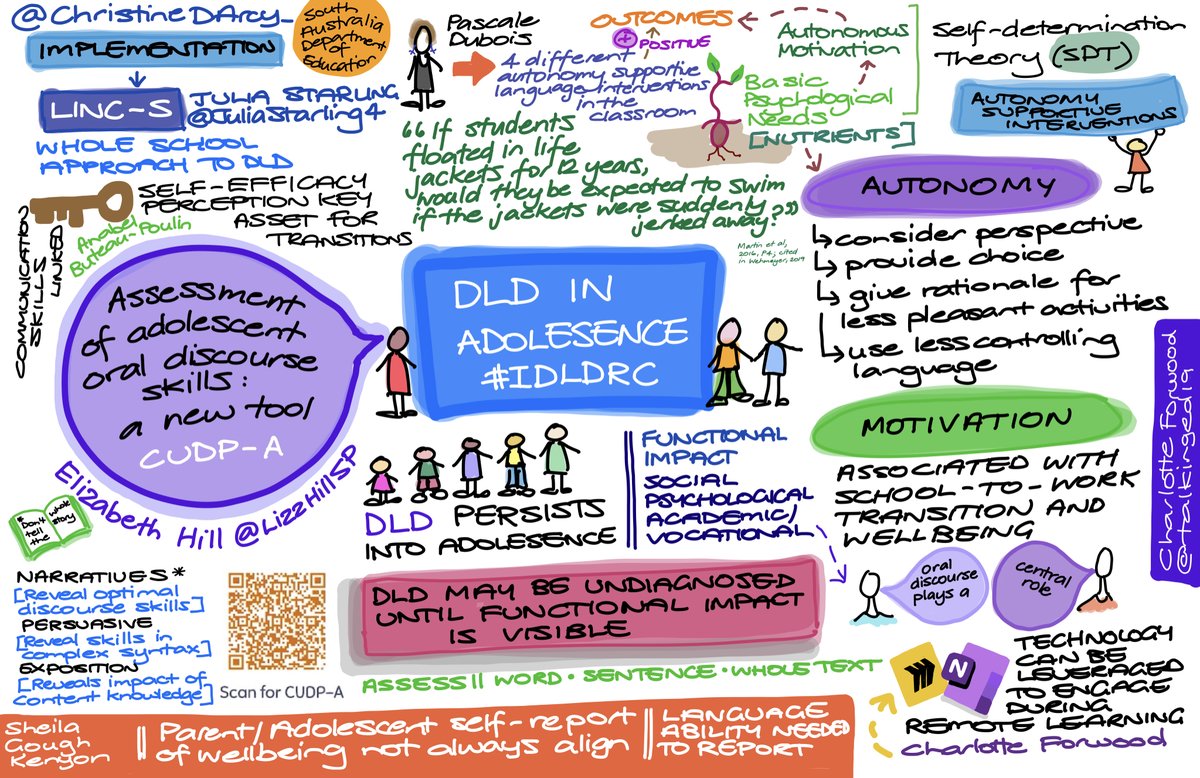 @ChristineDArcy_
IMPLEMENTATION
South
Australia
Department
of
Education
LINC-S
JULIA STARLING
@JuliaStarling4
WHOLE SCHOOL
APPROACH TO DLD
SELF-EFFICACY
PERCEPTION KEY
ASSET FOR
TRANSITIONS
Anabel
Buteau-Poulin
COMMUNICATION
SKILLS
LINKED
Pascale
Dubois
4 different
autonomy supportive
language interventions
in the
classroom
OUTCOMES
+ POSITIVE
Autonomous
Motivation
Basic
Psychological
Needs
[NUTRIENTS]
Self-determination
Theory (SDT)
AUTONOMY
SUPPORTIVE
INTERVENTIONS
“If students
floated in life
jackets for 12 years,
would they be expected to swim
if the jackets were suddenly
jerked away?”
Martin et al,
2016, P4; cited
in Wehmeyer, 2019
AUTONOMY
consider perspective
provide choice
give rationale for
less pleasant activities
use less controlling
language
Assessment
of adolescent
oral discourse
skills:
a new tool
CUDP-A
Elizabeth Hill @LizzHillSP
DLD IN
ADOLESENCE
#IDLDRC
MOTIVATION
ASSOCIATED WITH
SCHOOL-TO-WORK
TRANSITION AND
WELLBEING
Charlotte Forwood
@talkinged19
DLD PERSISTS
INTO ADOLESENCE
FUNCTIONAL
IMPACT
SOCIAL
PSYCHOLOGICAL
ACADEMIC/
VOCATIONAL
oral
discourse
plays a
central
role
*
Don't
tell
the
whole
story
NARRATIVES*
[Reveal optimal
discourse skills]
PERSUASIVE
[Reveal skills in
complex syntax]
EXPOSITION
[Reveals impact of
content knowledge]
Scan for CUDP-A
DLD MAY BE UNDIAGNOSED
UNTIL FUNCTIONAL IMPACT
IS VISIBLE
ASSESS || WORD • SENTENCE • WHOLE TEXT
N
TECHNOLOGY
CAN BE
LEVERAGED
TO ENGAGE
DURING
REMOTE LEARNING
Charlotte Forwood
Sheila
Gough
Kenyon
Parent/Adolescent self-report
of wellbeing not always align
LANGUAGE
ABILITY NEEDED
TO REPORT